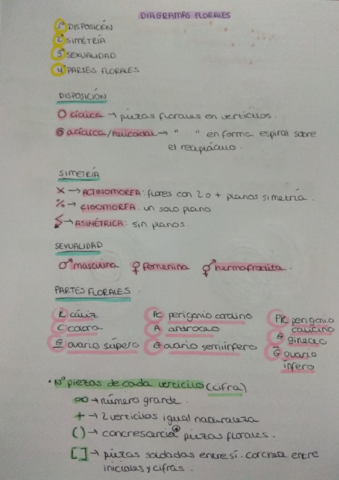 DIAGRAMAS FLORALES
1º DISPOSICIÓN
2º SIMETRÍA
3º SEXUALIDAD
4º PARTES FLORALES
DISPOSICIÓN
cíclica → piezas florales en verticilos.
acíclica/helicoidal → " " en forma espiral sobre
el receptáculo.
SIMETRÍA
✕ → ACTINOMORFA: flores con 2 o + planos simetría.
% → CIGOMORFA: un solo plano
→ ASIMÉTRICA: sin planos.
SEXUALIDAD
♂ masculina ♀ femenina ⚥ hermafrodita.
PARTES FLORALES
K cáliz PC perigonio corolino PK perigonio calicino
C corola A androceo G gineceo
G ovario súpero G ovario semiínfero G ovario ínfero
• Nº piezas de cada verticilo (cifra)
∞ → número grande.
+ → 2 verticilos igual naturaleza
( ) → concrescencia piezas florales.
[ ] → piezas soldadas entre sí. corchete entre
iniciales y cifras.